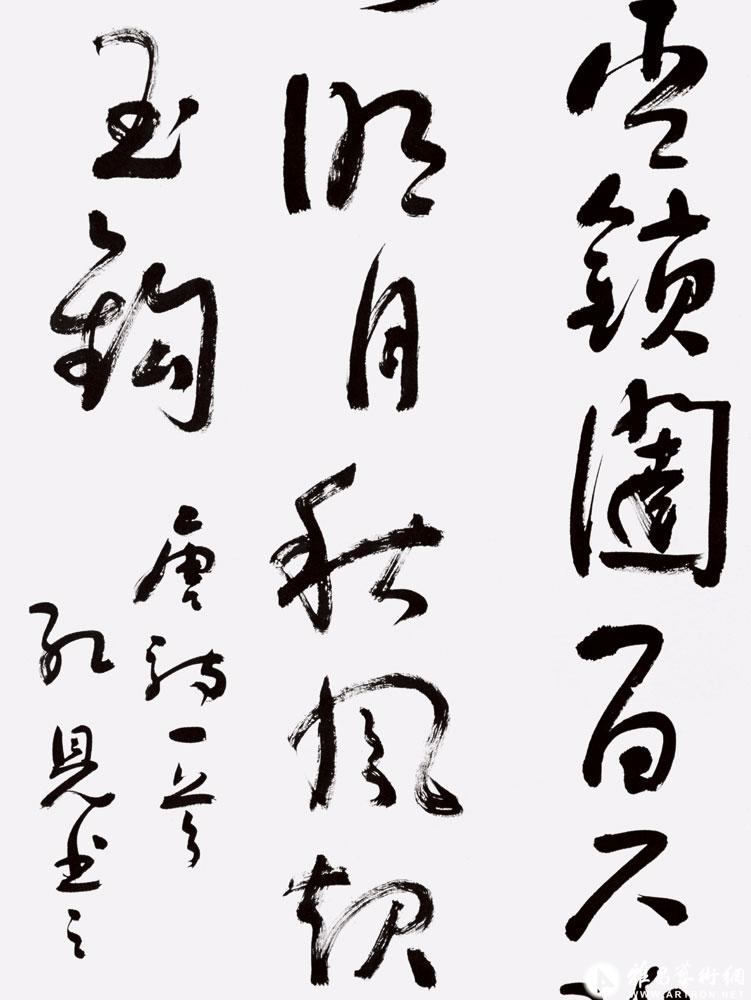 鎖百尺
明月秋風起
玉鉤
唐詩一首
孔見書之
雅昌藝術網
WWW.ARTRON.NET